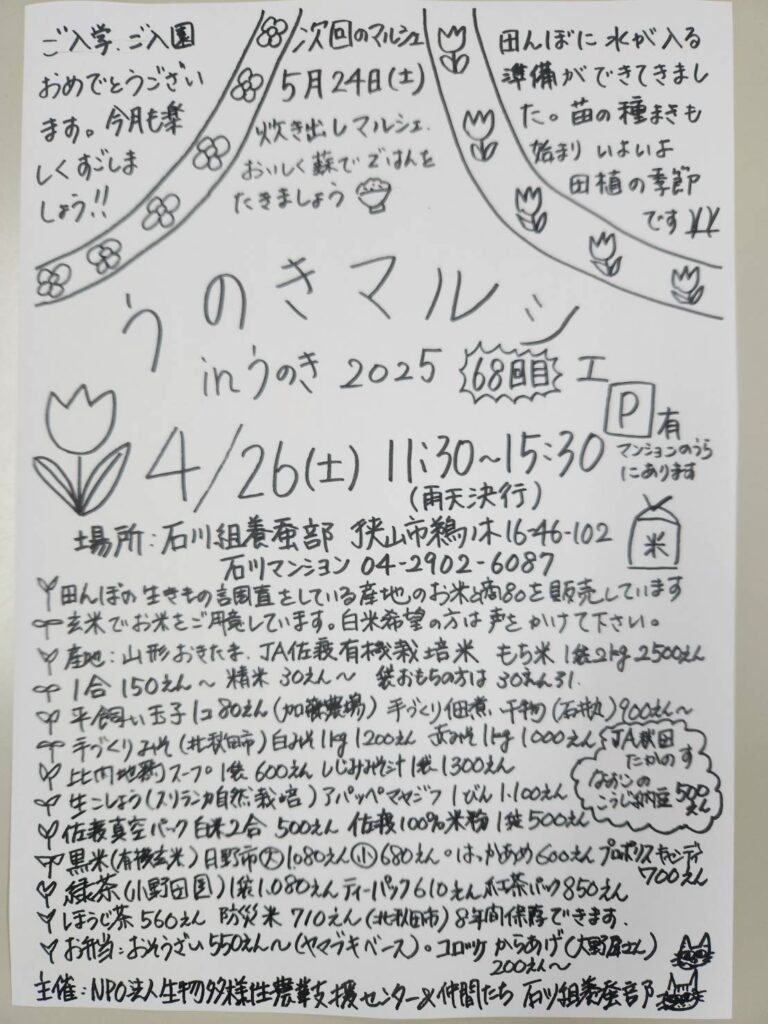 ご入学、ご入園
おめでとうござい
ます。今月も楽
しくすごしま
しょう!!
次回のマルシェ
5月24日(土)
炊き出しマルシェ.
おいしく蘇でごはんを
たきましょう
田んぼに水が入る
準備ができてきまし
た。苗の種まきも
始まりいよいよ
田植の季節
です!!
うのきマルシ
ェ
inうのき 2025 68回目
P有
マンションのうら
にあります
4/26(土) 11:30~15:30
(雨天決行)
場所:石川組養蚕部 狭山市鵜ノ木16-46-102
石川マンション 04-2902-6087
米
田んぼの生きもの調査をしている産地のお米と商品を販売しています
玄米でお米をご用意しています。白米希望の方は声をかけて下さい。
産地:山形おきたま、JA佐渡有機栽培米 もち米1袋2kg 2500えん
1合150えん~ 精米30えん~ 袋おもちの方は30えん引
平飼い玉子1コ80えん(加藤農場) 手づくり佃煮、干物(石井丸)900えん~
手づくりみそ(北秋田市)白みそ1kg 1200えん 赤みそ1kg 1000えん
比内地鶏スープ1袋600えん しじみみそ汁1袋1300えん
JA秋田
たかのす
なるこの
こうじ納豆 500えん
生こしょう(スリランカ自然栽培) アパッペマヤジフ1びん1.100えん
佐渡真空パック白米2合 500えん 佐渡100%米粉1袋500えん
黒米(有機玄米)日野市大1080えん小680えん。はっかあめ600えん プロポリスキャンディ
700えん
緑茶(小野田園)1袋1.080えんティーパック610えん 紅茶パック850えん
ほうじ茶560えん 防災米710えん(北秋田市)8年間保存できます.
お弁当:おそうざい550えん~(ヤマブキベース)。コロッケ からあげ(大野屋さん)
200えん~
主催:NPO法人生物多様性農業支援センター&仲間たち 石川組養蚕部